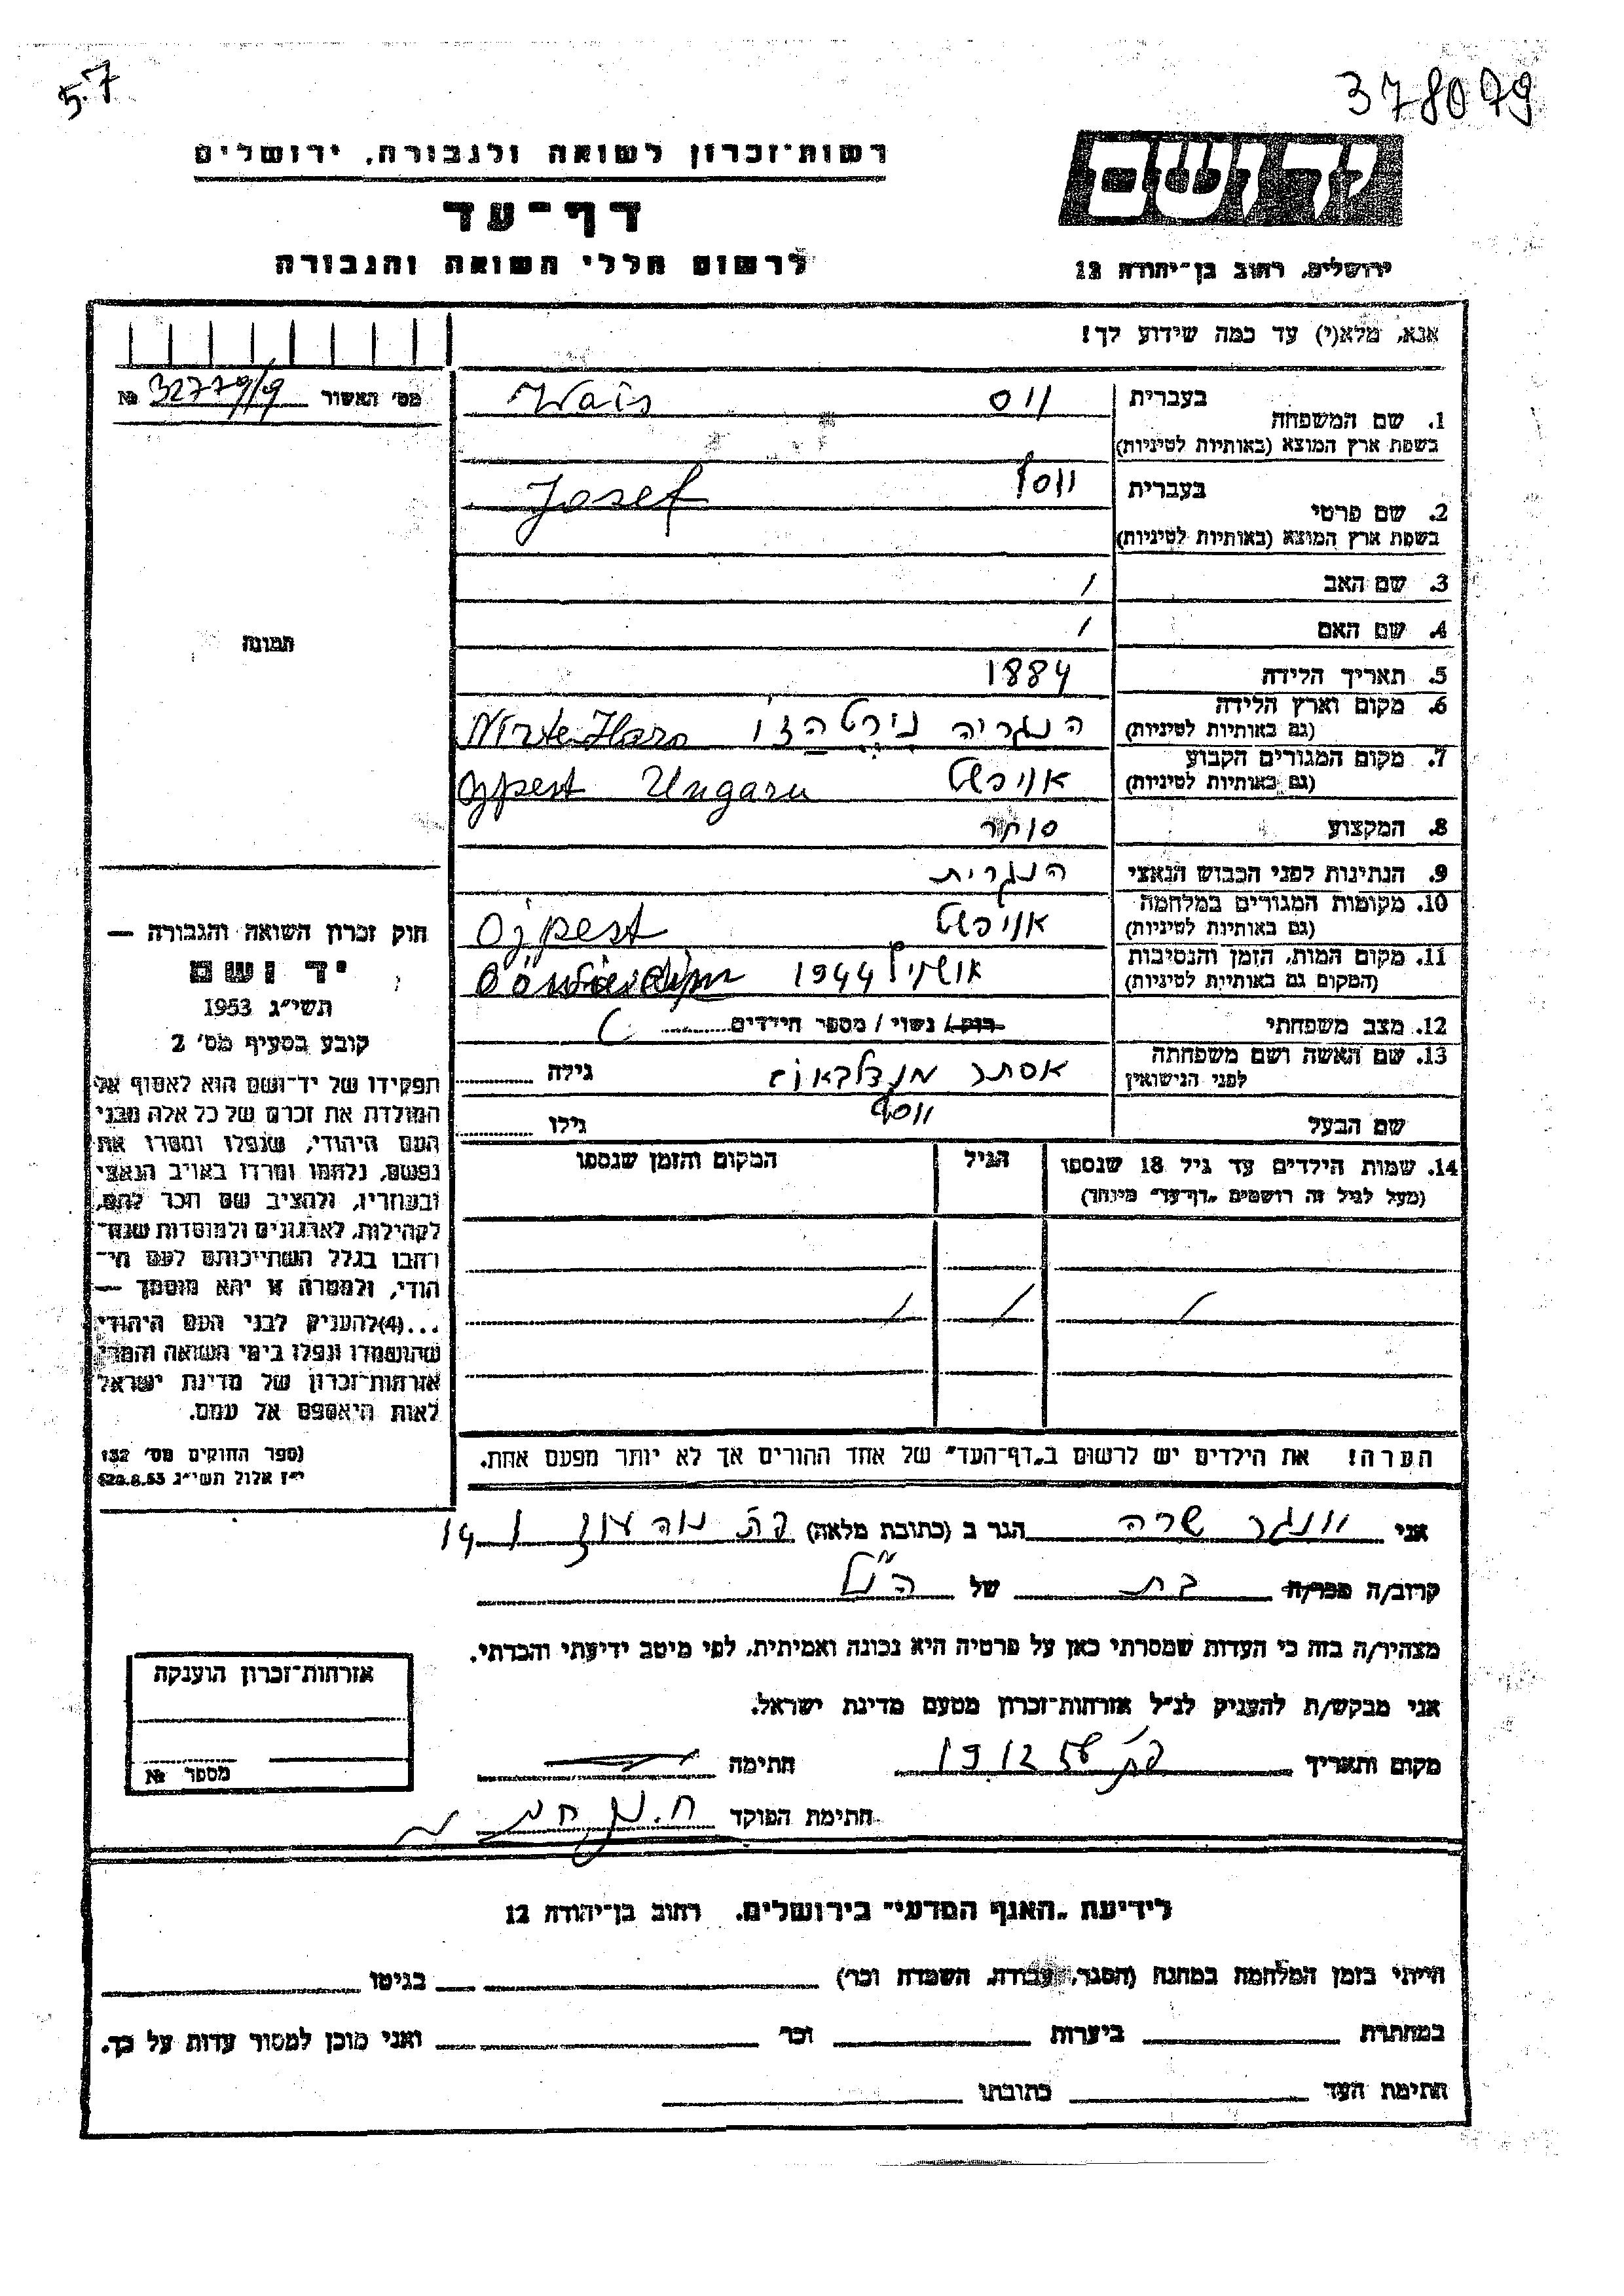 5.7
378079
יד ושם
רשות-זכרון לשואה ולגבורה, ירושלים
דף-עד
לרשום חללי השואה והגבורה
ירושלים, רחוב בן-יהודה 12
אנא, מלא(י) עד כמה שידוע לך!
מס' האשור № 32779/19
1. שם המשפחה
בעברית ווס Wais
בשפת ארץ המוצא (באותיות לטיניות)
2. שם פרטי
בעברית יוסף Josef
בשפת ארץ המוצא (באותיות לטיניות)
3. שם האב /
4. שם האם /
תמונה
5. תאריך הלידה 1884
6. מקום וארץ הלידה
(גם באותיות לטיניות) הנגריה
7. מקום המגורים הקבוע
(גם באותיות לטיניות) אויפשט Ojpest Ungaru
8. המקצוע סוחר
9. הנתינות לפני הכבוש הנאצי הנגרית
10. מקומות המגורים במלחמה
(גם באותיות לטיניות) אויפשט Ojpest
11. מקום המות, הזמן והנסיבות
(המקום גם באותיות לטיניות) 1944
12. מצב משפחתי רווק / נשוי / מספר הילדים
13. שם האשה ושם משפחתה
לפני הנישואין אסתר גילה
שם הבעל יוסף גילו
14. שמות הילדים עד גיל 18 שנספו
(מעל לגיל זה רושמים „דף-עד" מיוחד)
הגיל
המקום והזמן שנספו
/ / /
הערה! את הילדים יש לרשום ב„דף-העד" של אחד ההורים אך לא יותר מפעם אחת.
חוק זכרון השואה והגבורה —
יד ושם
תשי"ג 1953
קובע בסעיף מס' 2
תפקידו של יד-ושם הוא לאסוף אל
המולדת את זכרם של כל אלה מבני
העם היהודי, שנפלו ומסרו את
נפשם, נלחמו ומרדו באויב הנאצי
ובעוזריו, ולהציב שם וזכר להם,
לקהילות, לארגונים ולמוסדות שנח-
רבו בגלל השתייכותם לעם הי-
הודי, ולמטרה זו יהא מוסמך —
...(4)להעניק לבני העם היהודי
שהושמדו ונפלו בימי השואה והמרי
אזרחות-זכרון של מדינת ישראל
לאות היאספם אל עמם.
(ספר החוקים מס' 132
י"ז אלול תשי"ג 28.8.53)
אני וונגר שרה הגר ב (כתובת מלאה) פת
קרוב/ה מכר/ה בת של הנ"ל
מצהיר/ה בזה כי העדות שמסרתי כאן על פרטיה היא נכונה ואמיתית, לפי מיטב ידיעתי והכרתי.
אני מבקש/ת להעניק לנ"ל אזרחות-זכרון מטעם מדינת ישראל.
מקום ותאריך חתימה
חתימת הפוקד
אזרחות-זכרון הוענקה
מספר №
לידיעת „האגף המדעי" בירושלים, רחוב בן-יהודה 12
הייתי בזמן המלחמה במחנה (הסגר, עבודה, השמדה וכו') בגיטו
במחתרת ביערות וכו' ואני מוכן למסור עדות על כך.
חתימת העד כתובתו